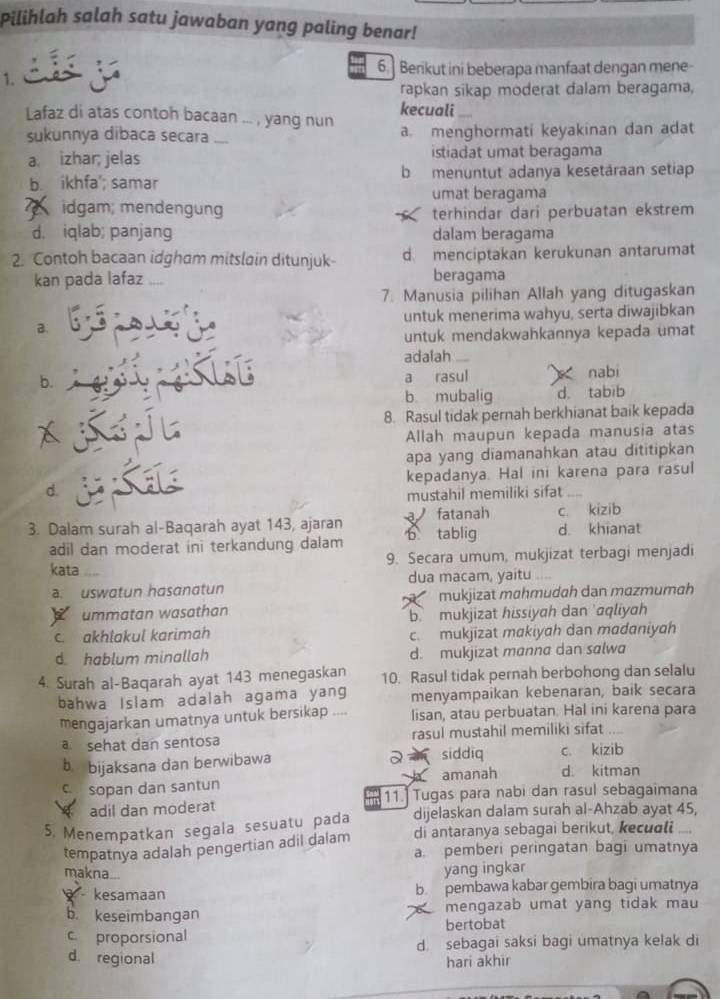 Pilihlah salah satu jawaban yang paling benar!
1. مَنْ خَفَّتْ
Lafaz di atas contoh bacaan ... , yang nun
sukunnya dibaca secara ....
a. izhar; jelas
b. ikhfa'; samar
idgam; mendengung
d. iqlab; panjang
2. Contoh bacaan idgham mitslain ditunjuk-
kan pada lafaz ....
a.
b.
d.
3. Dalam surah al-Baqarah ayat 143, ajaran
adil dan moderat ini terkandung dalam
kata ....
a. uswatun hasanatun
ummatan wasathan
c. akhlakul karimah
d. hablum minallah
4. Surah al-Baqarah ayat 143 menegaskan
bahwa Islam adalah agama yang
mengajarkan umatnya untuk bersikap ....
a. sehat dan sentosa
b. bijaksana dan berwibawa
c. sopan dan santun
adil dan moderat
5. Menempatkan segala sesuatu pada
tempatnya adalah pengertian adil dalam
makna...
kesamaan
b. keseimbangan
c. proporsional
d. regional
6. Berikut ini beberapa manfaat dengan mene-
rapkan sikap moderat dalam beragama,
kecuali ....
a. menghormati keyakinan dan adat
istiadat umat beragama
b menuntut adanya kesetaraan setiap
umat beragama
terhindar dari perbuatan ekstrem
dalam beragama
d. menciptakan kerukunan antarumat
beragama
7. Manusia pilihan Allah yang ditugaskan
untuk menerima wahyu, serta diwajibkan
untuk mendakwahkannya kepada umat
adalah ....
a rasul
nabi
b. mubalig
d. tabib
8. Rasul tidak pernah berkhianat baik kepada
Allah maupun kepada manusia atas
apa yang diamanahkan atau dititipkan
kepadanya. Hal ini karena para rasul
mustahil memiliki sifat ....
a fatanah
c. kizib
b. tablig
d. khianat
9. Secara umum, mukjizat terbagi menjadi
dua macam, yaitu ....
mukjizat mahmudah dan mazmumah
b. mukjizat hissiyah dan 'aqliyah
c. mukjizat makiyah dan madaniyah
d. mukjizat manna dan salwa
10. Rasul tidak pernah berbohong dan selalu
menyampaikan kebenaran, baik secara
lisan, atau perbuatan. Hal ini karena para
rasul mustahil memiliki sifat ....
siddiq
c. kizib
amanah
d. kitman
11. Tugas para nabi dan rasul sebagaimana
dijelaskan dalam surah al-Ahzab ayat 45,
di antaranya sebagai berikut, kecuali ....
a. pemberi peringatan bagi umatnya
yang ingkar
b. pembawa kabar gembira bagi umatnya
mengazab umat yang tidak mau
bertobat
d. sebagai saksi bagi umatnya kelak di
hari akhir